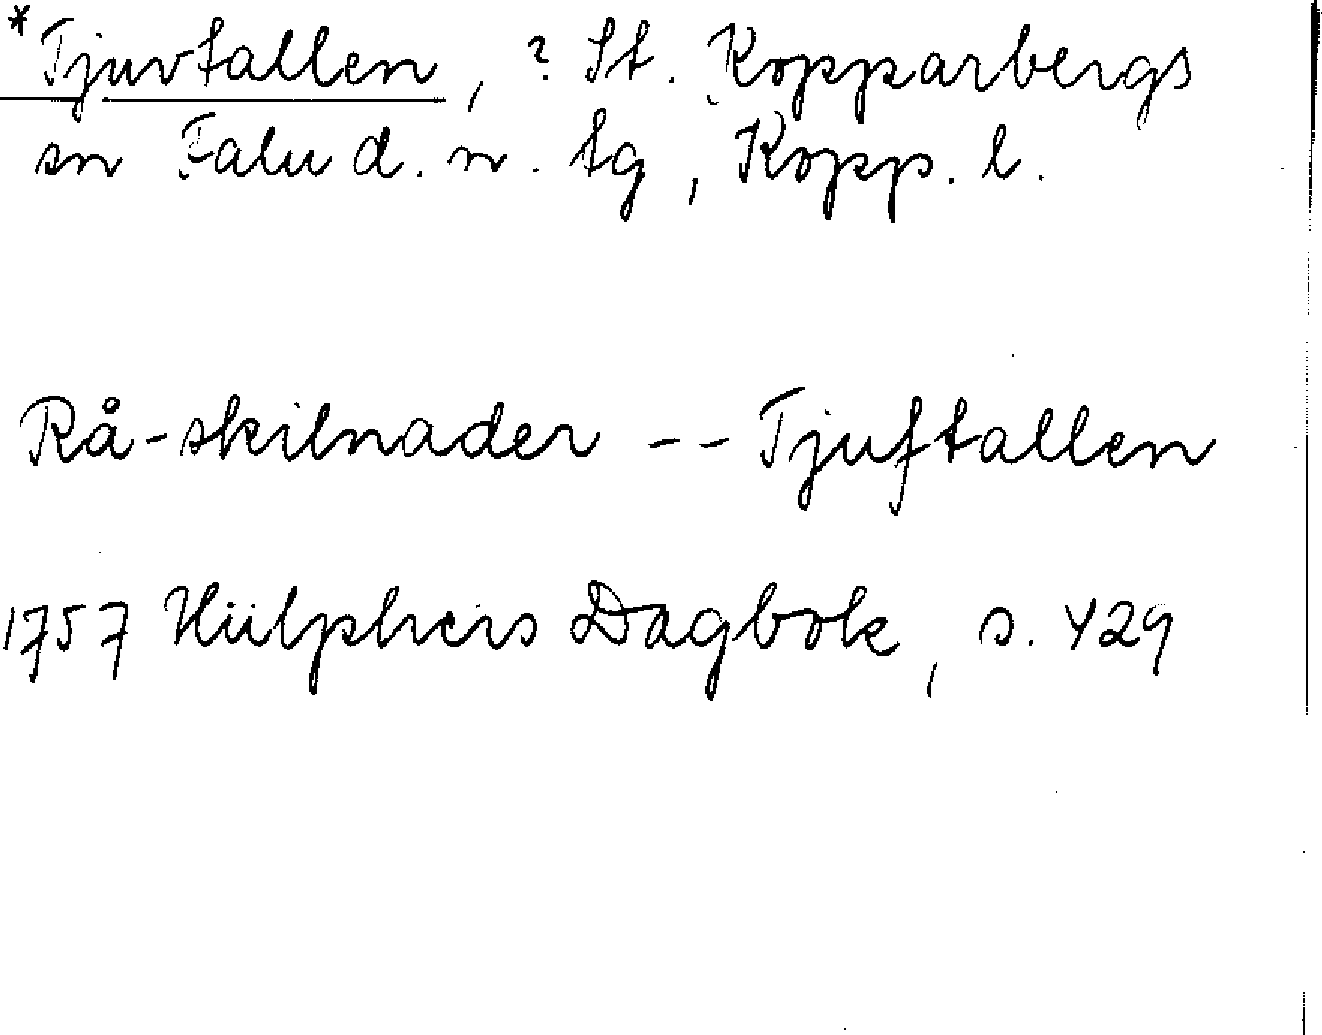 *Tjuvtallen, ? St. Kopparbergs
sn Falu d. n. tg, Kopp. l.
Rå-skilnader -- Tjuftallen
1757 Hülphers Dagbok, s. 429